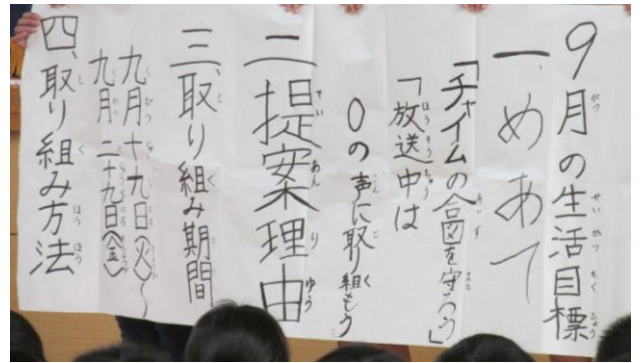 9月の生活目標
一、めあて
「チャイムの合図を守ろう」
「放送中は
0の声に取り組もう
二、提案理由
三、取り組み期間
九月十九日(火)〜
九月二十九日(金)
四、取り組み方法